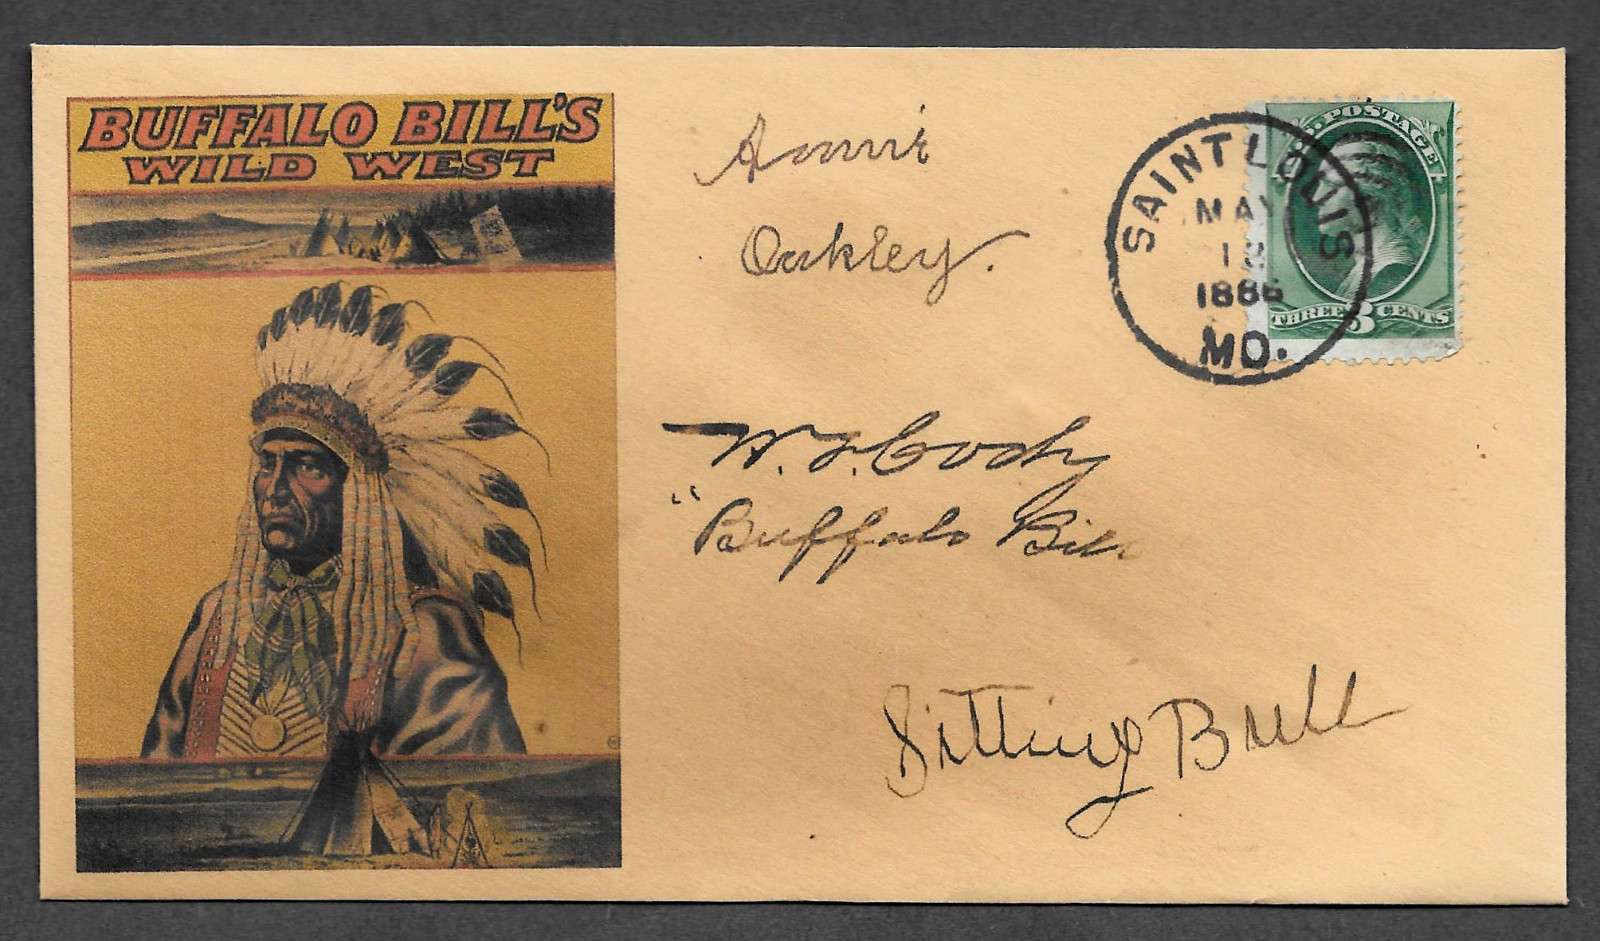 BUFFALO BILL'S
WILD WEST
Annie
Oakley.
SAINT LOUIS
MAY
18
1886
MO.
U.S. POSTAGE
THREE 3 CENTS
W. F. Cody
"Buffalo Bill
Sitting Bull